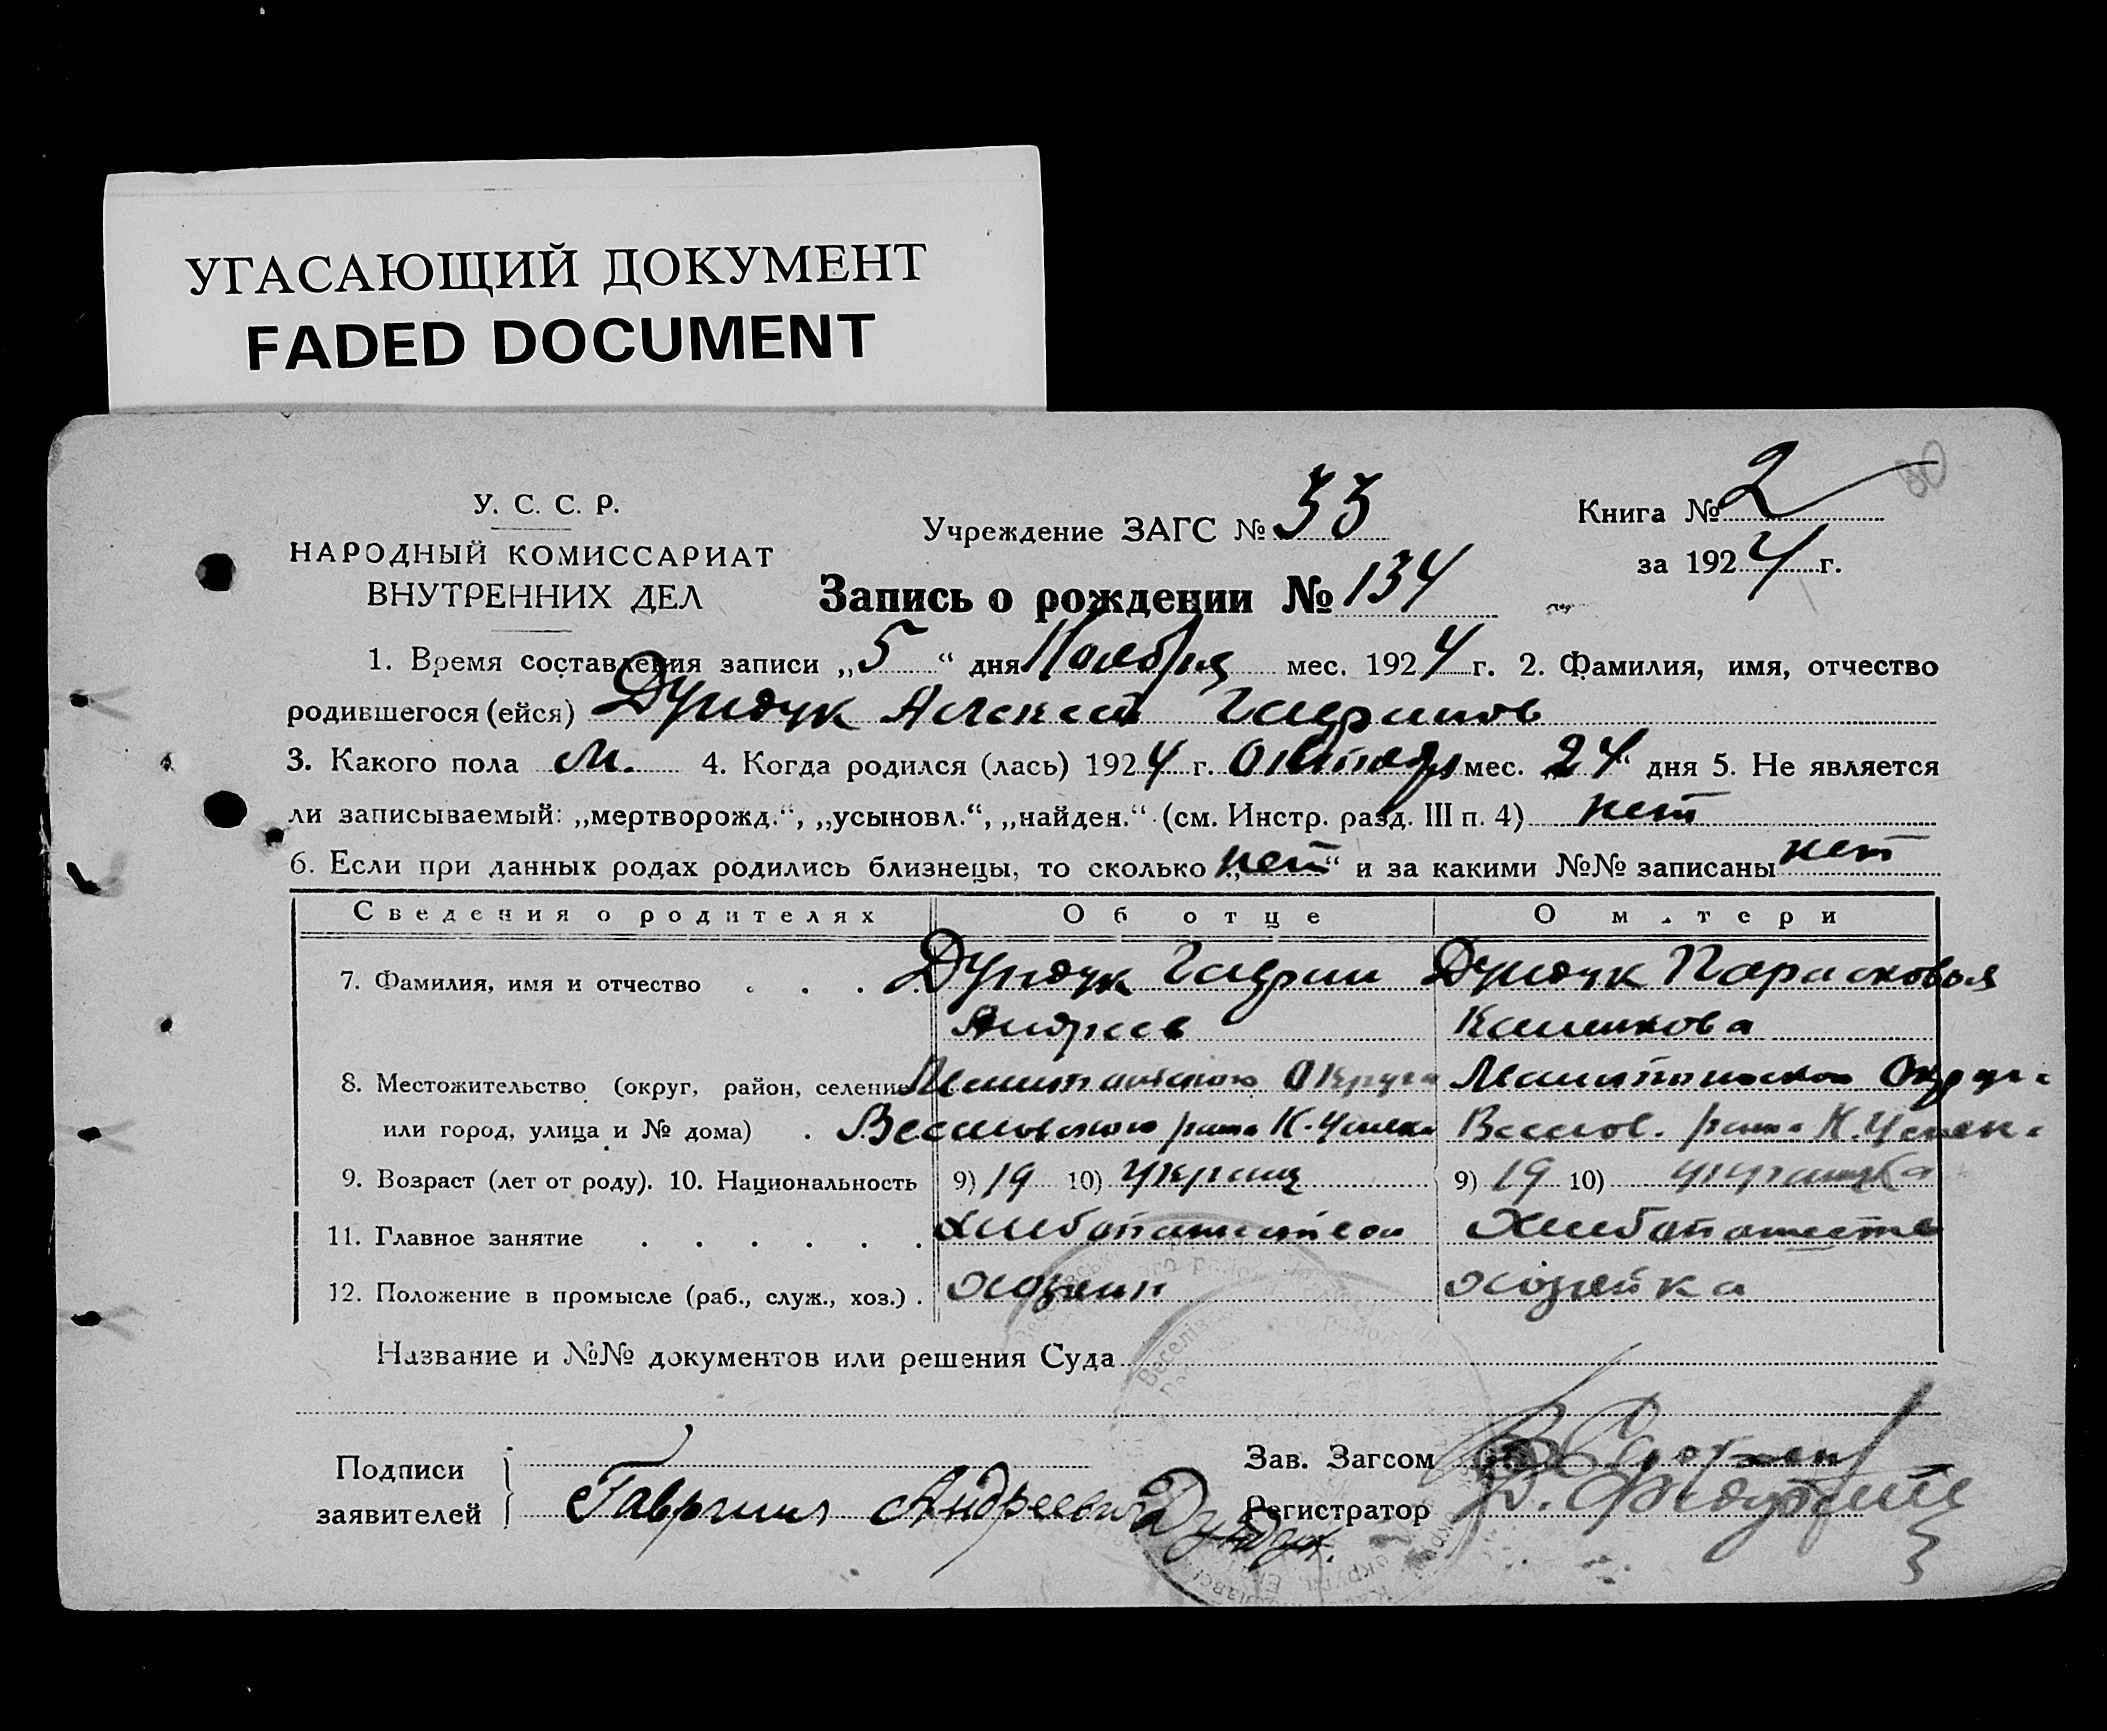 УГАСАЮЩИЙ ДОКУМЕНТ
FADED DOCUMENT
80
У. С. С. Р.
НАРОДНЫЙ КОМИССАРИАТ
ВНУТРЕННИХ ДЕЛ
Учреждение ЗАГС № 33
Книга № 2
за 1924 г.
Запись о рождении № 134
1. Время составления записи „5“ дня Ноября мес. 1924 г. 2. Фамилия, имя, отчество
родившегося (ейся) Дундук Алексей Гаврилов
3. Какого пола м. 4. Когда родился (лась) 1924 г. Октября мес. „24“ дня 5. Не является
ли записываемый: „мертворожд.“, „усыновл.“, „найден.“ (см. Инстр. разд. III п. 4) нет
6. Если при данных родах родились близнецы, то сколько „нет“ и за какими №№ записаны нет
Сведения о родителях Об отце О матери
7. Фамилия, имя и отчество . . . . Дундук Гаврил Дундук Парасковья
Андреев
8. Местожительство (округ, район, селение Округа
или город, улица и № дома) . Веселовского рана К. Веселов. рана К.
9. Возраст (лет от роду). 10. Национальность 9) 19 10) украин 9) 19 10) украинка
11. Главное занятие . . . . . . Хлебопашество Хлебопашеств
12. Положение в промысле (раб., служ., хоз.) . хозяин хозяйка
Название и №№ документов или решения Суда
Подписи
заявителей
Гавриил Андреевич Дундук.
Зав. Загсом
Регистратор